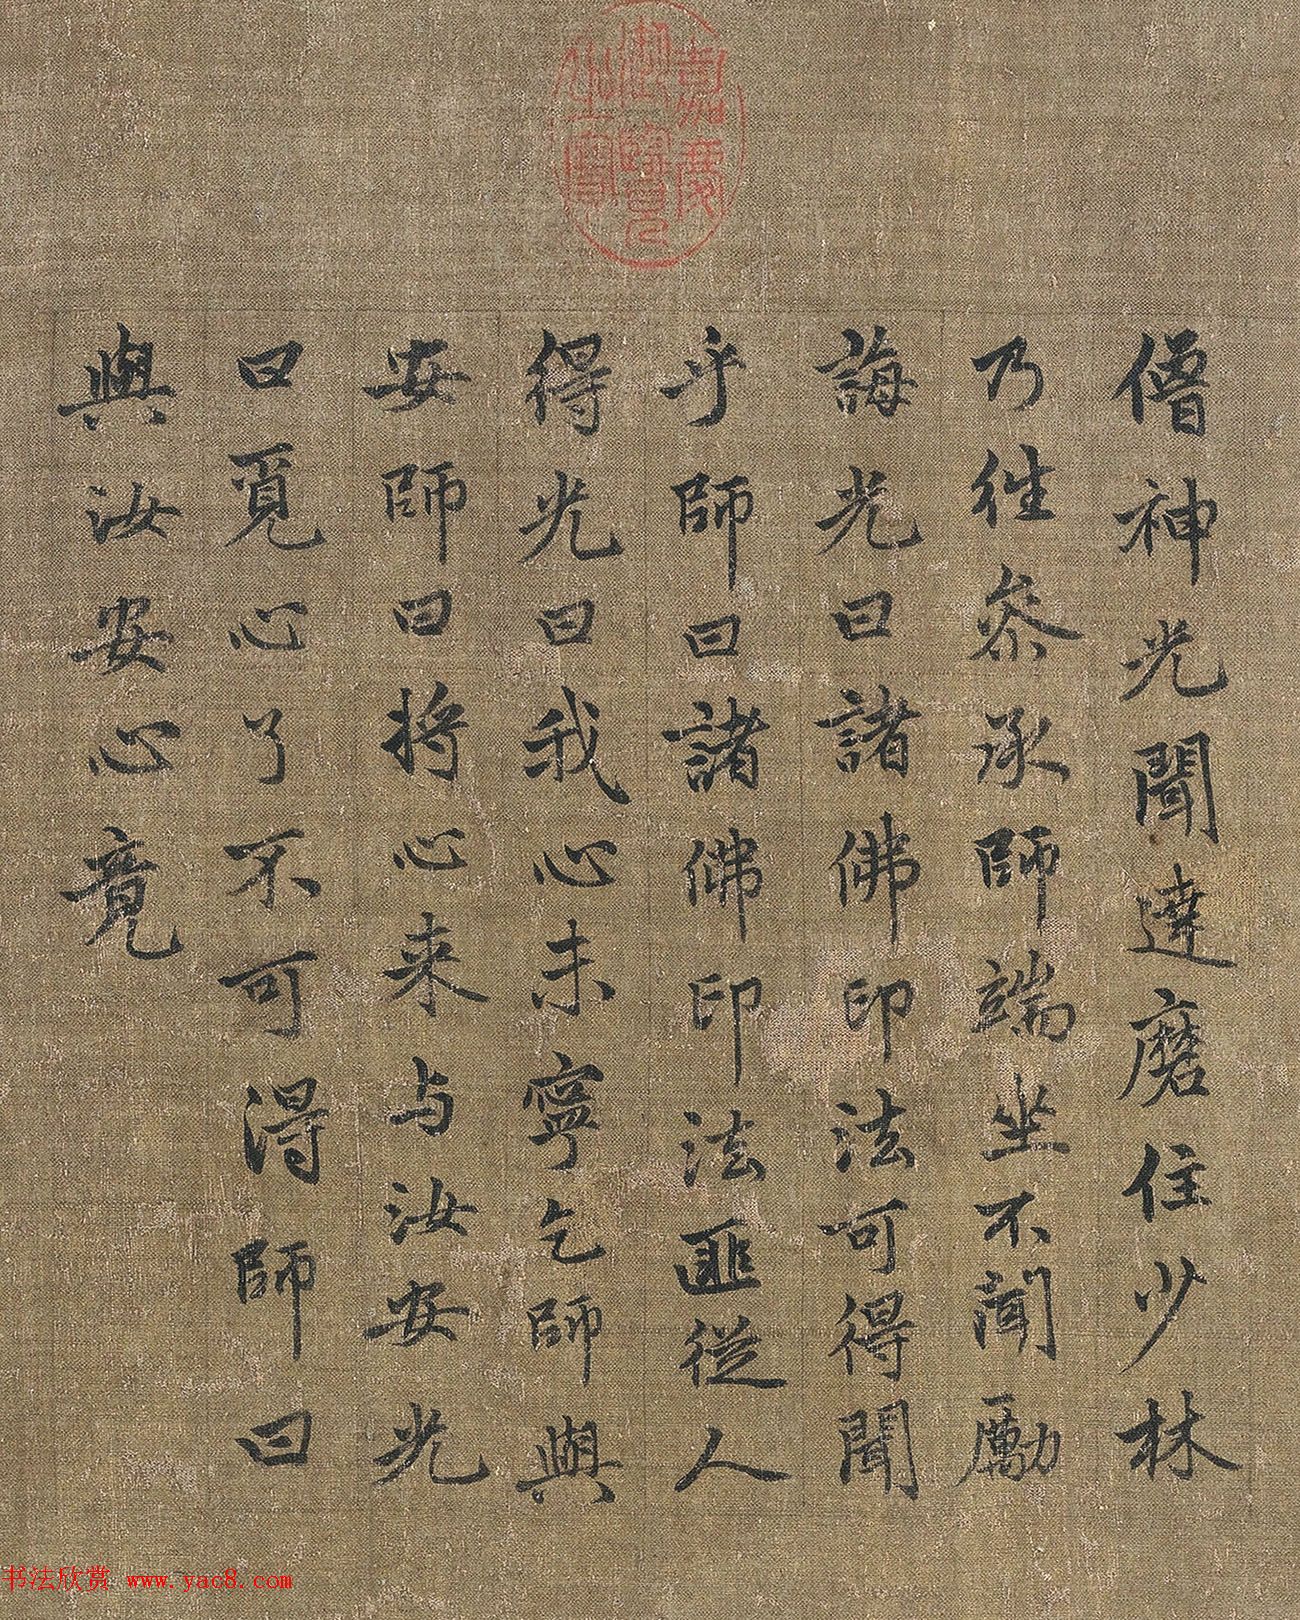 嘉慶御覽之寶
僧神光聞達磨住少林
乃往參承師端坐不聞勵
誨光曰諸佛印法可得聞
乎師曰諸佛印法匪從人
得光曰我心未寧乞師與
安師曰將心来与汝安光
曰覓心了不可得師曰
與汝安心竟
书法欣赏 www.yac8.com